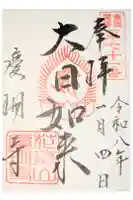 奉拝
令和八年
一月四日
大日如来
慶明寺